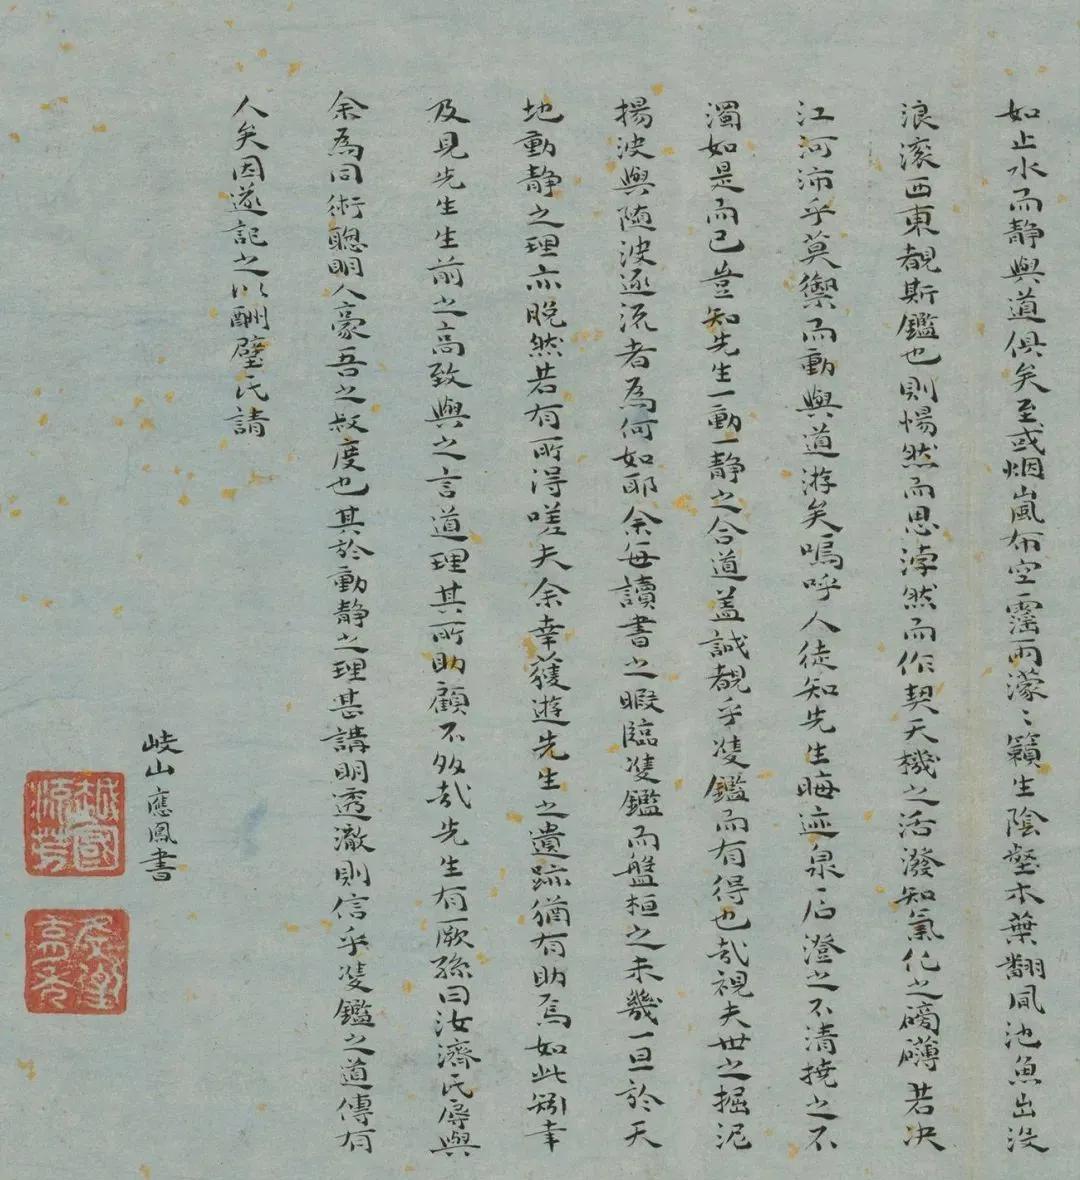 如止水而静與道俱矣至或烟嵐布空霪雨濛〻籟生陰壑木葉翻風池魚出没
浪滚西東覩斯鑑也則惕然而思浡然而作契天機之活潑知氣化之磅礴若决
江河沛乎莫禦而動與道游矣嗚呼人徒知先生晦迹泉石澄之不清撓之不
濁如是而已豈知先生一動一静之合道盖誠覩乎雙鑑而有得也哉視夫世之掘泥
揚波與随波逐流者為何如耶余每讀書之暇臨雙鑑而盤桓之未幾一旦於天
地動静之理亦晩然若有所得嗟夫余幸獲遊先生之遺跡猶有助焉如此矧幸
及見先生生前之高致與之言道理其所助顧不多哉先生有厥孫曰汝濟氏辱與
余為同術聰明人豪吾之叔度也其於動静之理甚講明透澈則信乎雙鑑之道傳有
人矣因遂記之以酬璧氏請
岐山應鳳書